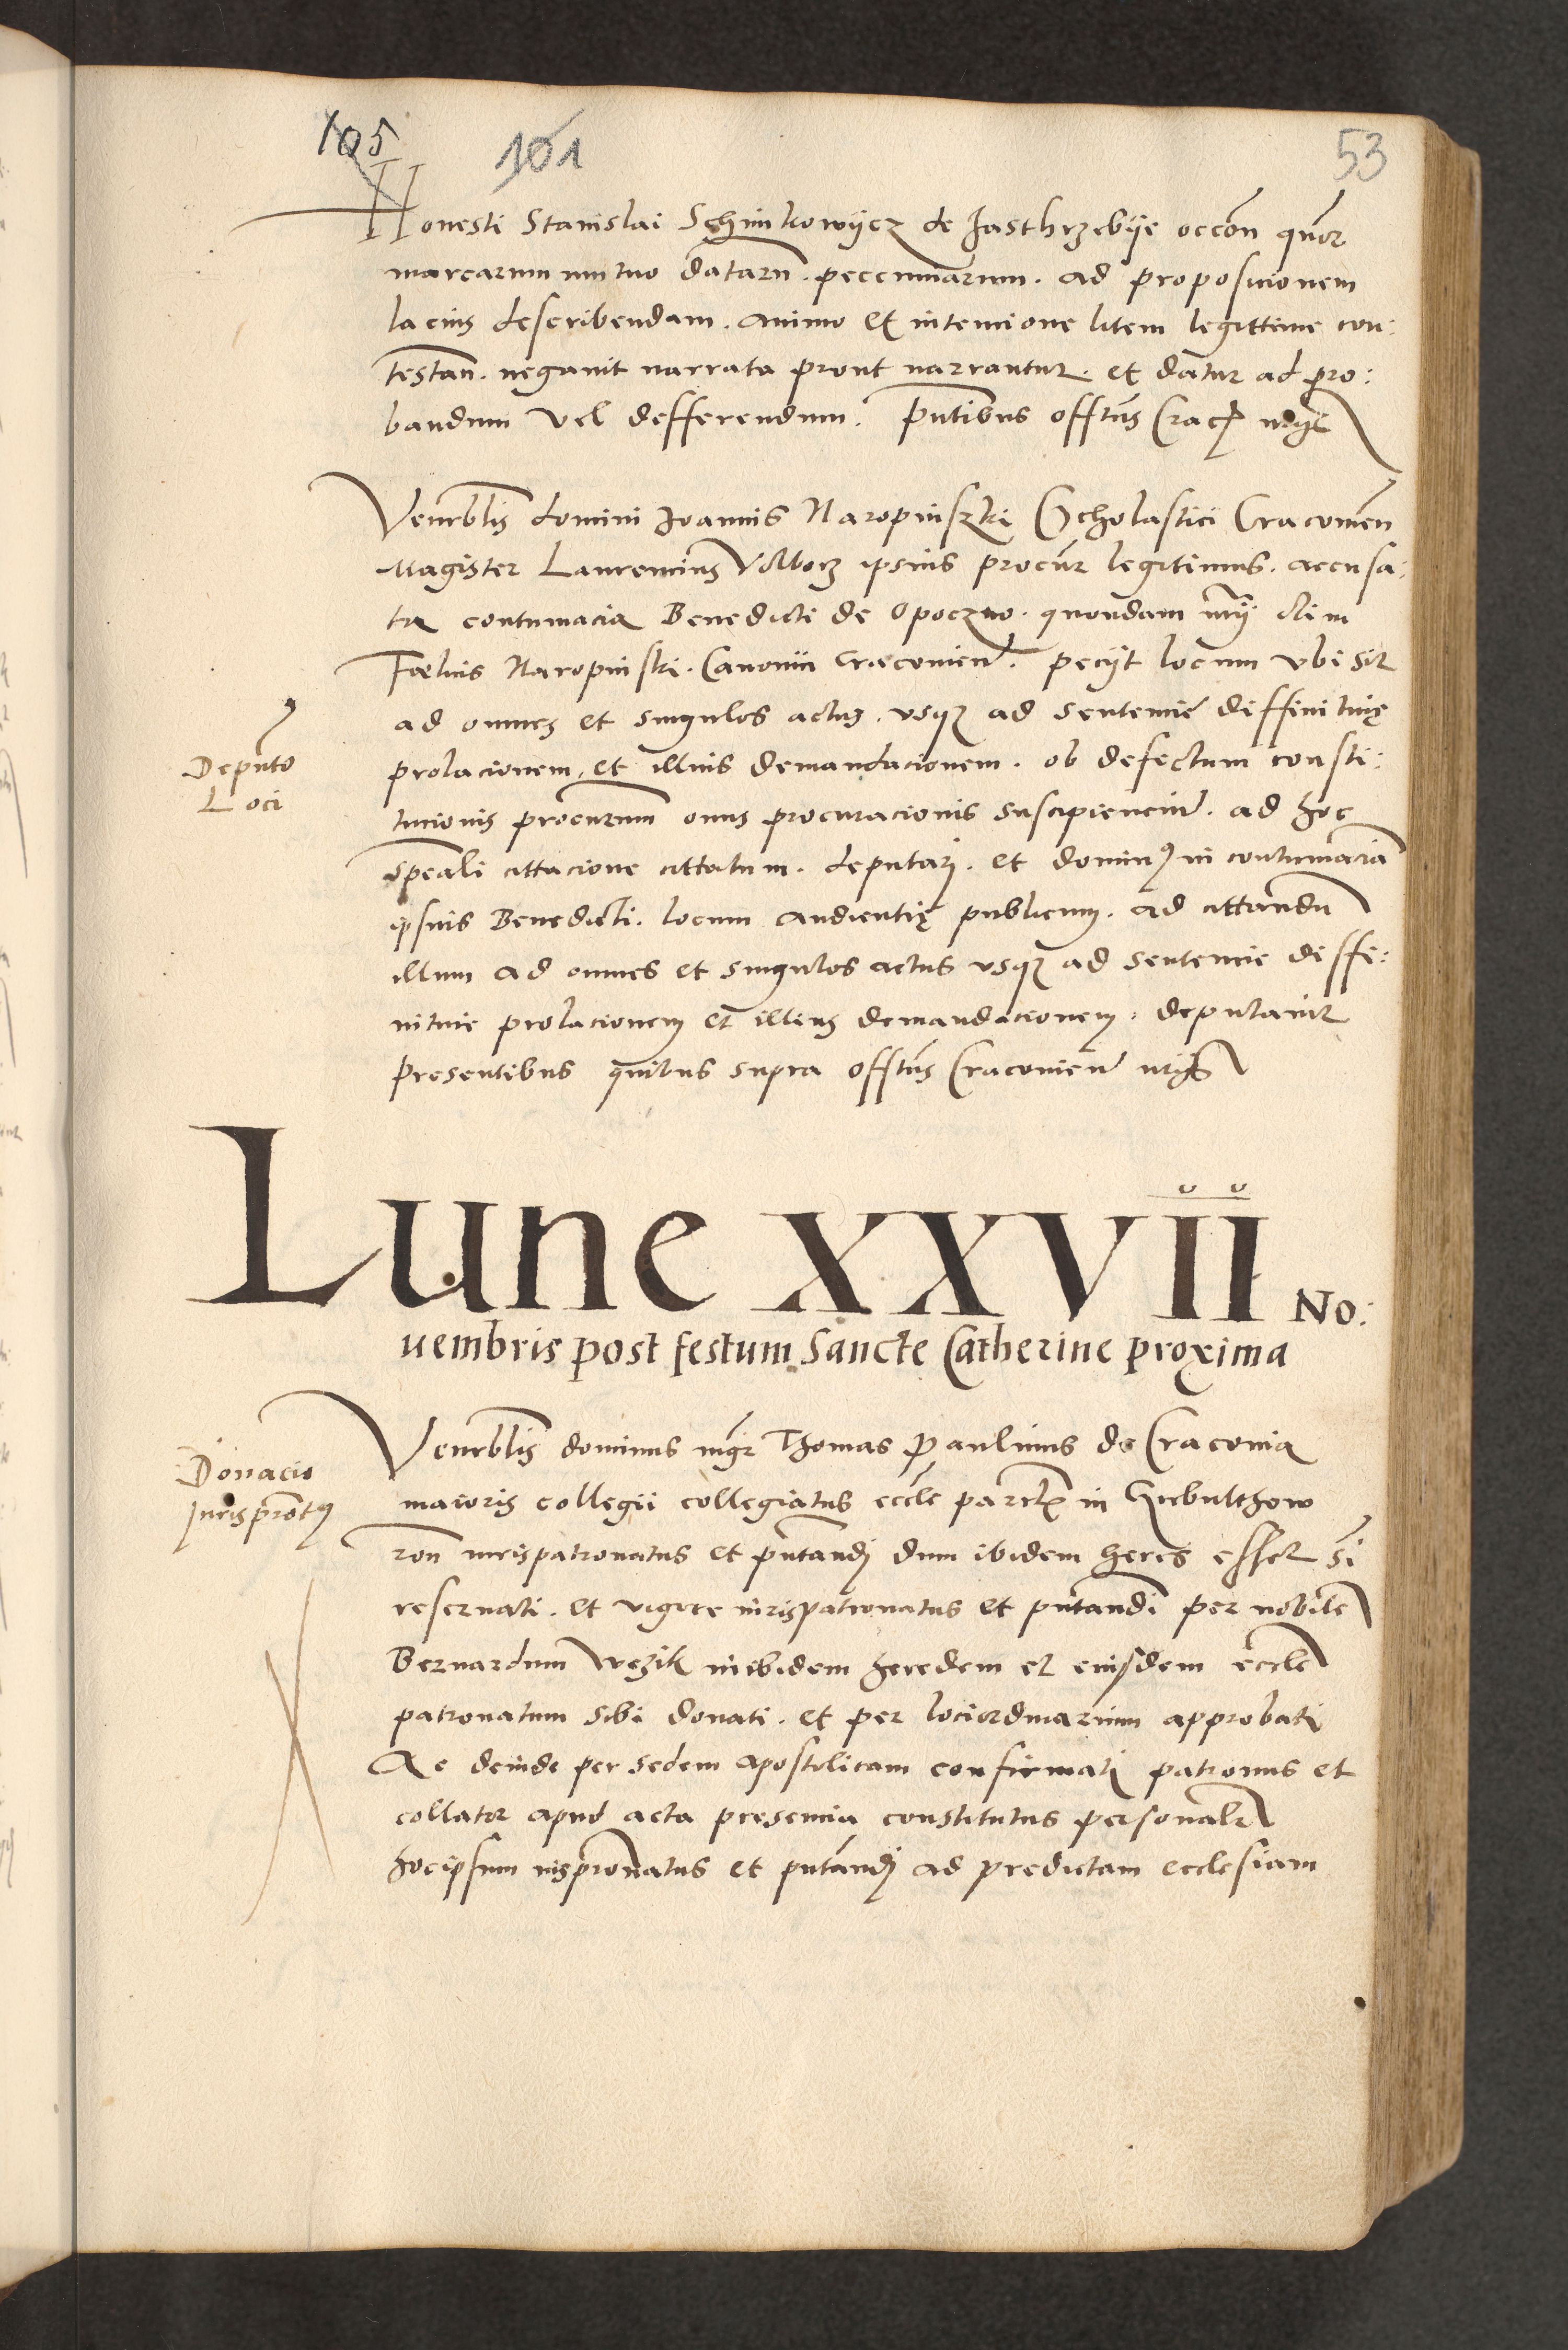 105 101 53
Honesti Stanislai Schimkowycz de Jasthrzebije occon quor
marcarum mutuo datarn. peccuniarum. ad proposicionem
lacius describendam. animo et intencione litem legittime con:
testan. negauit narrata prout narrantur. et datur ad pro:
bandum vel defferendum. pntibus offtus Crac
Venrblis domini Joannis Naropinszki Scholastici Cracouien
Magister Laurencius Wolborz ipsius procur legitimus. accusa:
ta contumacia Benedicti de Opoczno. quondam olim
Foelicis Naropinski. Canonici Cracouien. peciit locum vbi sit
ad omnes et singulos actus. vsq ad sentencie diffinitiuę
Deputo
Loci
prolacionem, et illius demandacionem. ob defectum consti:
tucionis procurum onus procuracionis suscipiencium. ad hoc
speali cittacione cittatum. deputari. et dominus in contumaciam
ipsius Benedicti. locum audientię publicum. ad cittandu
illum ad omnes et singulos actus vsq ad sentencie diffi:
nitiuie prolacionem et illius demandacionem. deputauit
presentibus quibus supra offtus Cracouien
Lune XXVII No:
uembris post festum Sancte Catherine proxima
Donacio
Jurisprontus
Venrblis dominus mgr Thomas Paulinus de Craconia
maioris collegii collegiatus eccle in Giebulthow
ron iurispatronatus et pntandi dum ibidem heres esset si
reseruati. et vigore iurispatronatus et pntandi per nobile
Bernardum Wezik inibidem heredem et eiusdem eccle
patronatum sibi donati. et per lociordinarium approbati
Ac deinde per sedem apostolicam confirmati patronus et
collator apud acta presencia constitutus personalr
hocipsum iuspronatus et pntandi ad predictam ecclesiam